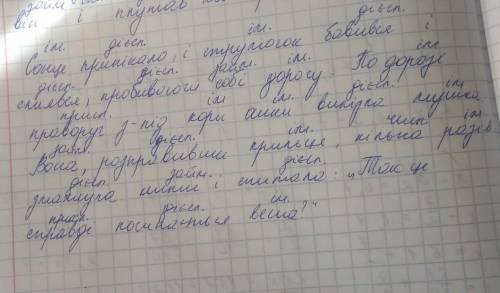 займ.
він і
ім. дієсп. ім. дієсп.
Сонце припікало, і струмочок бавився і
дієсп. дієсп. займ. ім. ім.
сміявся, пробиваючи собі дорогу. По дорозі
присл. ім ім. дієсп. ім
праворуч з-під кори випула мушка.
займ. дієсп. ім. числ ім
Вона, розправивши крильця, кілька разів
дієсп. займ. дієсп.
змахнула ними і спитала: „Так це
присл. дієсп. ім.
справді починається весна?"